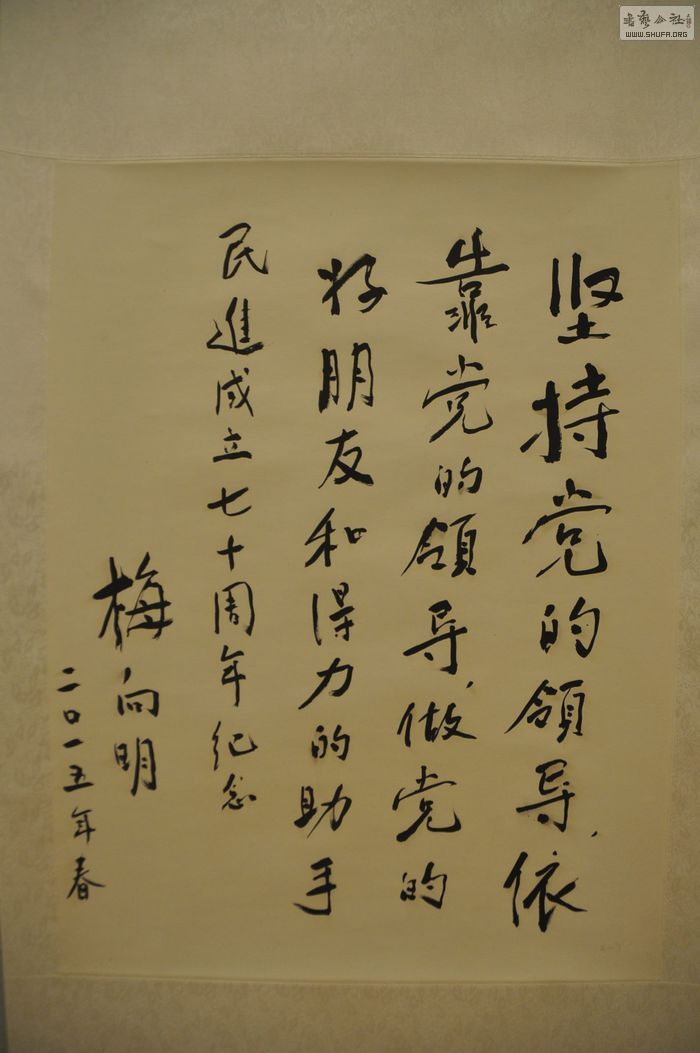 坚持党的領导,依
靠党的領导,做党的
好朋友和得力的助手
民進成立七十周年纪念
梅向明
二〇一五年春
書藝公社
WWW.SHUFA.ORG